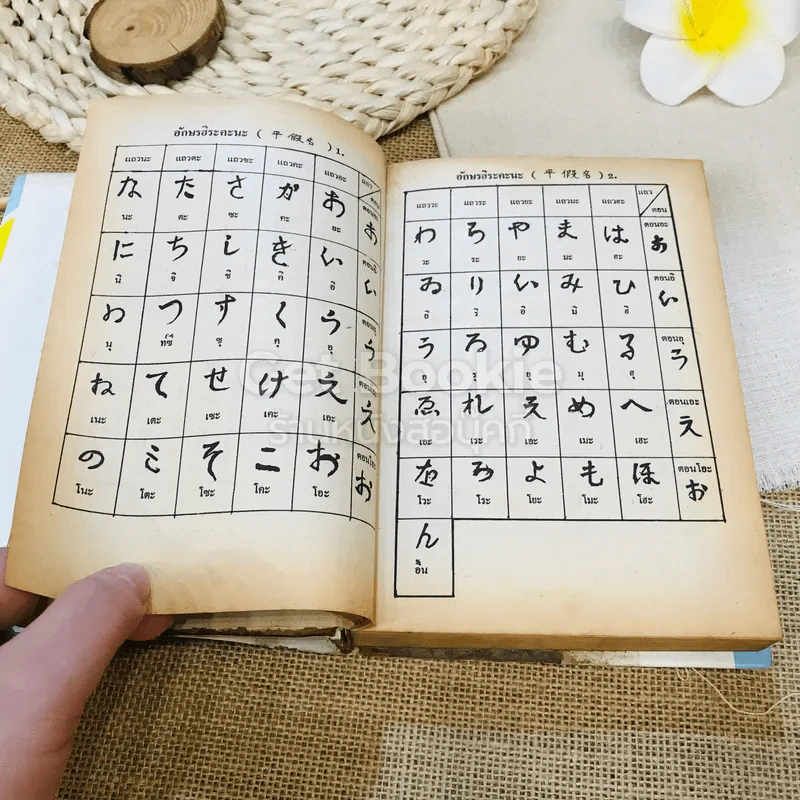 อักษรฮิระคะนะ ( 平假名 )1.
แถวนะ แถวตะ แถวซะ แถวคะ แถวอะ แถว
ตอนอะ
な た さ か あ あ
นะ ตะ ซะ คะ อะ
に ち し き い い
นิ จิ ชิ คิ อิ ตอนอิ
ぬ つ す く う う
นุ ทซึ ซุ คุ อุ ตอนอุ
ね て せ け え え
เนะ เตะ เซะ เคะ เอะ ตอนเอะ
の と そ こ お お
โนะ โตะ โซะ โคะ โอะ ตอนโอะ
อักษรฮิระคะนะ ( 平假名 )2.
แถววะ แถวระ แถวยะ แถวมะ แถวฮะ แถว
ตอน
わ ら や ま は あ
วะ ระ ยะ มะ ฮะ ตอนอะ
ゐ り い み ひ い
อิ ริ อิ มิ ฮิ ตอนอิ
う る ゆ む ふ う
อุ รุ ยุ มุ ฮุ ตอนอุ
ゑ れ え め へ え
เอะ เระ เอะ เมะ เฮะ ตอนเอะ
を ろ よ も ほ お
โวะ โระ โยะ โมะ โฮะ ตอนโอะ
ん
อึน
Get Bookie
ร้านหนังสือบุคกี้